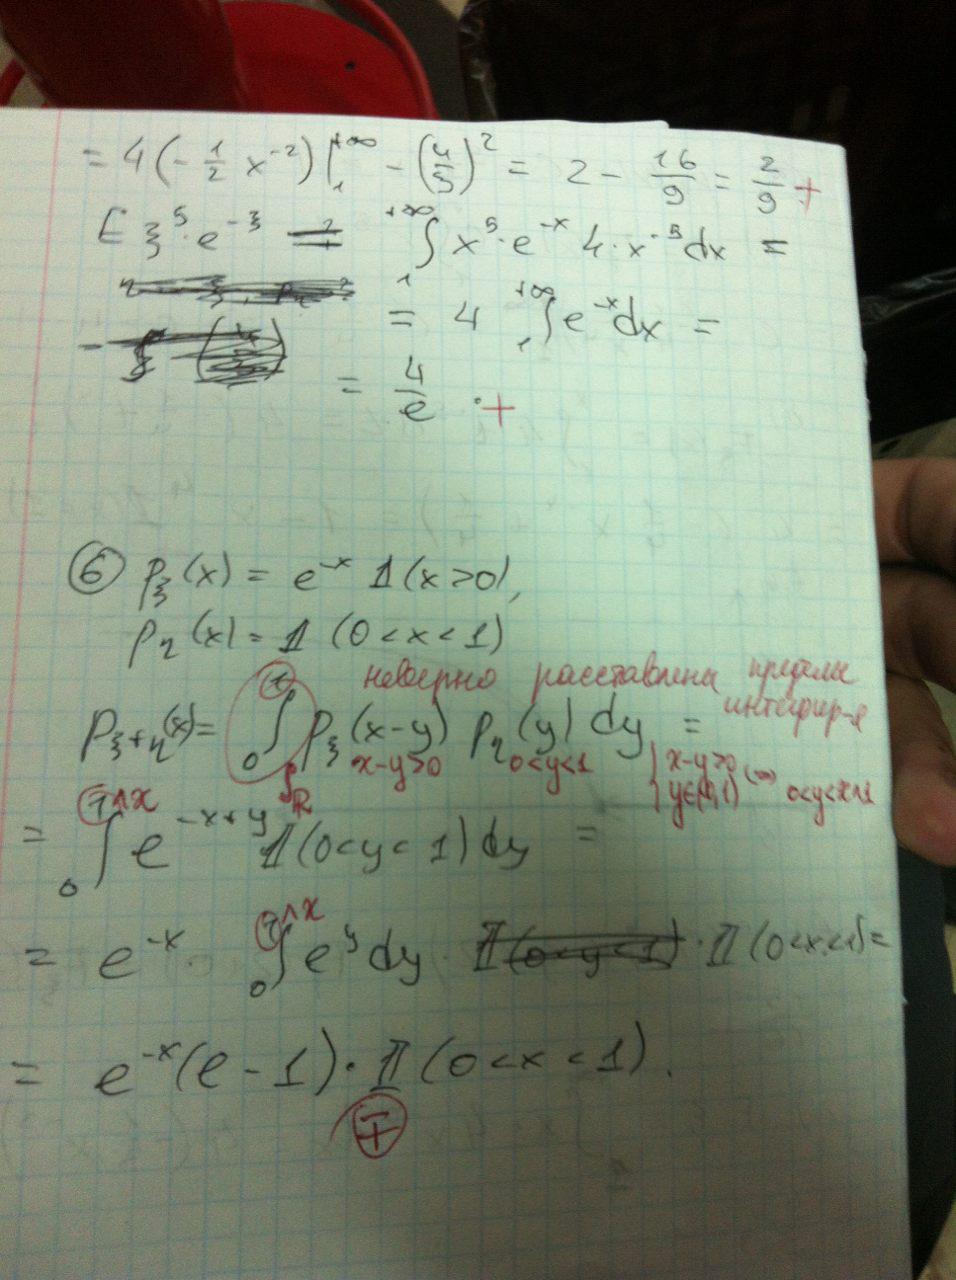 = 4(-1/2 x^-2)|_1^+∞ - (4/3)^2 = 2 - 16/9 = 2/9 +
E ξ^5 · e^-ξ = ∫_1^+∞ x^5 · e^-x 4 · x^-5 dx =
= 4 ∫_1^+∞ e^-x dx =
= 4/e . +
⑥ p_ξ(x) = e^-x 𝟙(x>0),
p_η(x) = 𝟙 (0<x<1)
неверно расставлены пределы
интегрир-я
p_ξ+η(x) = ∫_0^1 p_ξ(x-y) p_η(y) dy =
∫_ℝ x-y>0 0<y<1 { x-y>0
y∈(0,1) (=) 0<y<x∧1
= ∫_0^1∧x e^-x+y 𝟙(0<y<1) dy =
= e^-x ∫_0^1∧x e^y dy · 𝟙(0<x<1) =
= e^-x(e-1) · 𝟙(0<x<1).
∓